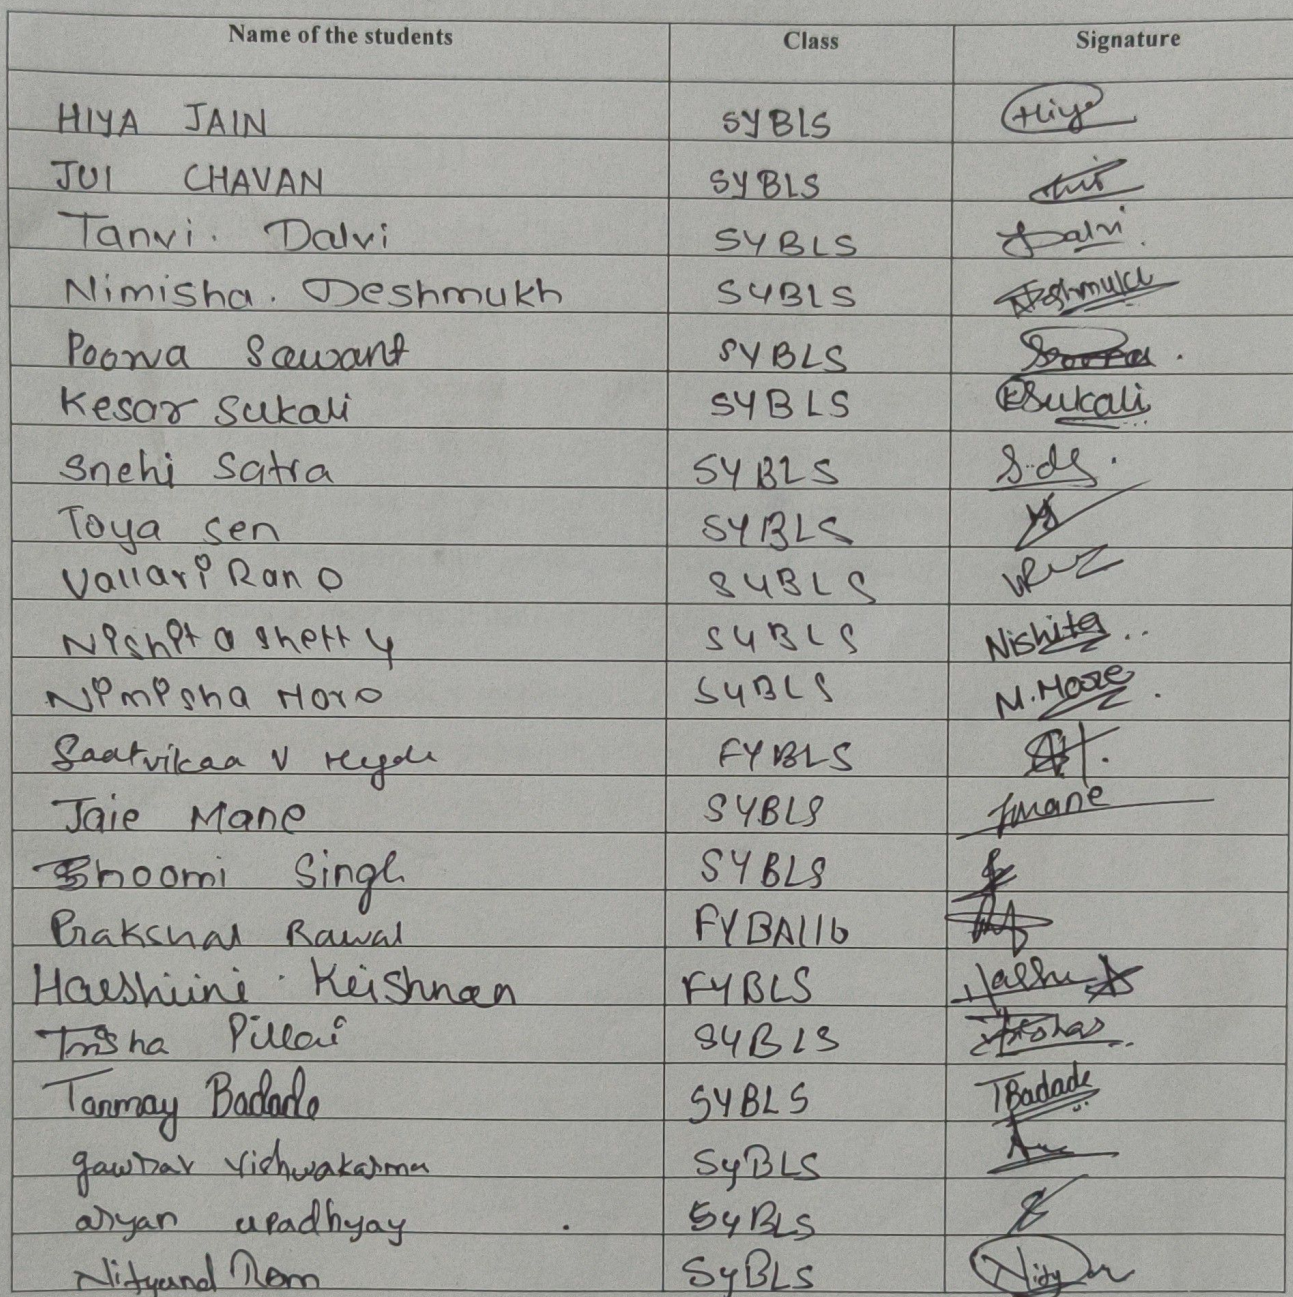 Name of the students Class Signature
HIYA JAIN SYBLS Hiya
JUI CHAVAN SYBLS
Tanvi. Dalvi SYBLS Dalvi.
Nimisha. Deshmukh SYBLS NDeshmukh
Poorva Sawant SYBLS
Kesar Sukali SYBLS KSukali
Snehi Satra SYBLS
Toya Sen SYBLS
Vallari Rane SYBLS
Nishita Shetty SYBLS Nishita
Nimisha More SYBLS N.More
Saatvikaa V Hegde FYBLS
Jaie Mane SYBLS Jmane
Bhoomi Singh SYBLS
Prakshal Rawal FYBA
Harshini Krishnan FYBLS
Trisha Pillai SYBLS
Tanmay Badade SYBLS TBadade
gaurav vishwakarma SyBLS
aryan upadhyay SyBLS
Nityanand SyBLS